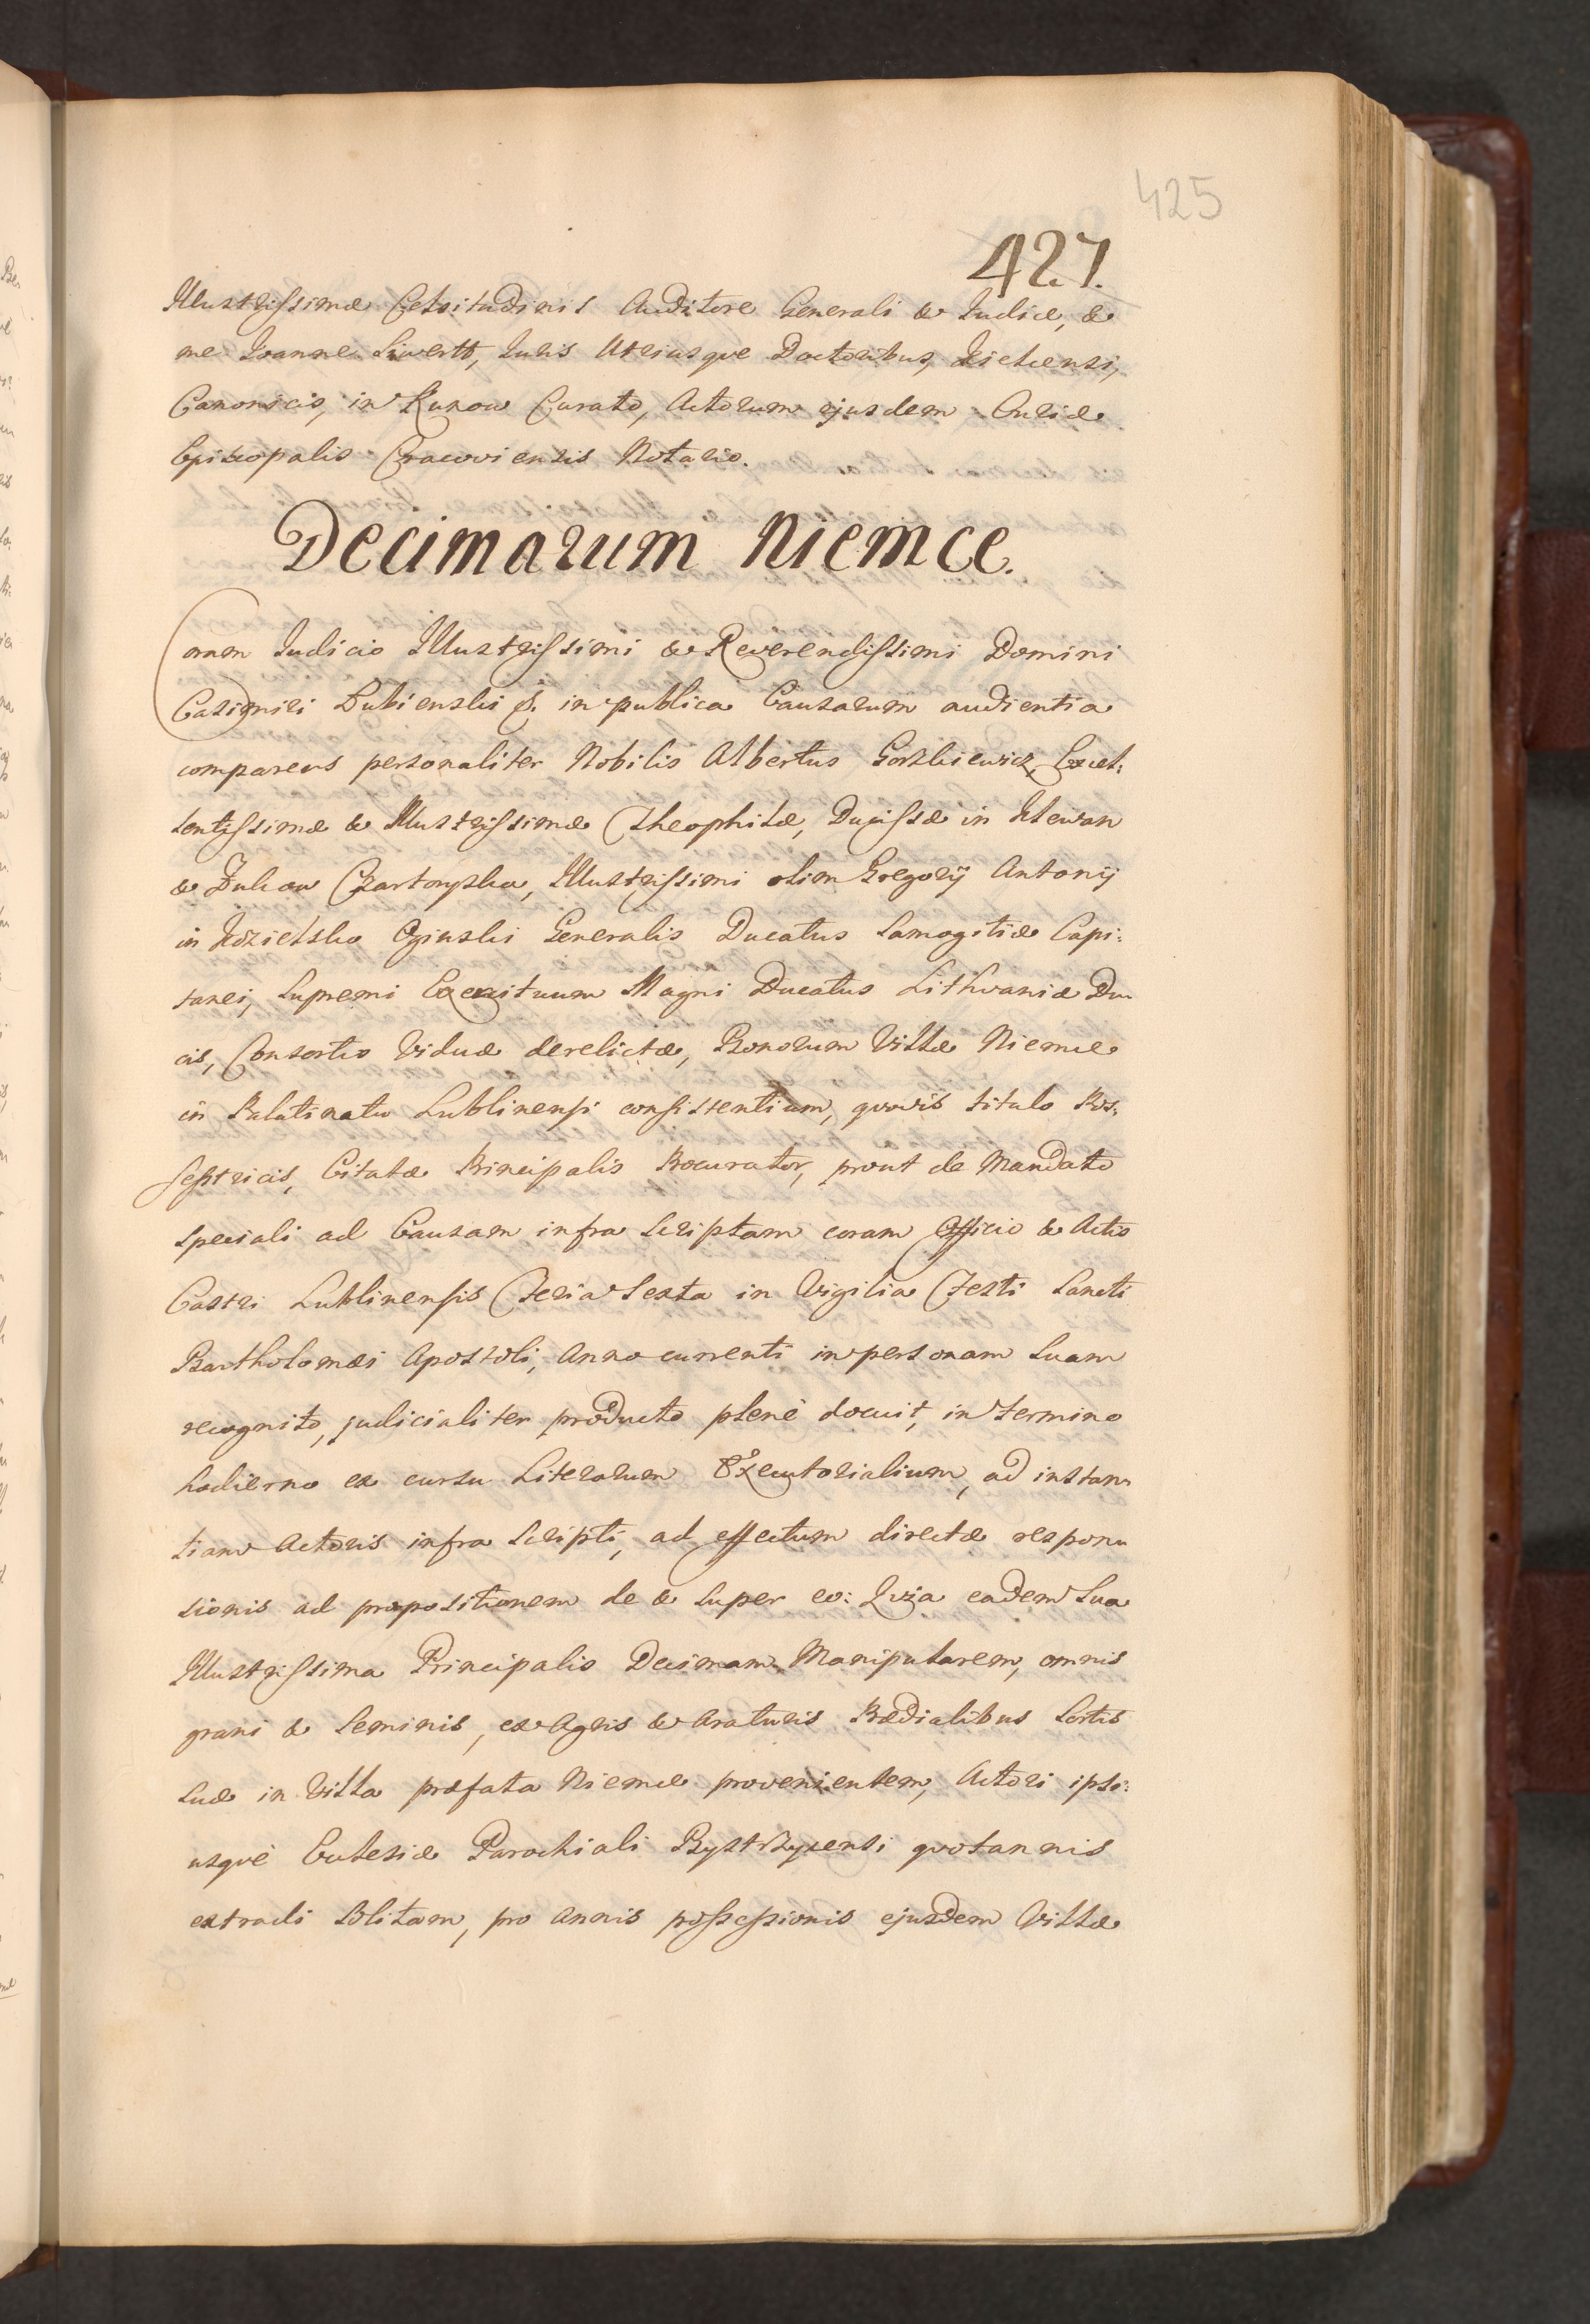 425
427.
Illustrissimæ Celsitudinis Auditore Generali & Iudice, &
me Ioanne Siwertt, Iuris Utriusque Doctoribus, Kielcensi,
Canonicis, in Kunow Curato, Actorum ejusdem Curiæ
Episcopalis Cracoviensis Notario.
Decimarum Niemce.
Coram Iudicio Illustrissimi & Reverendissimi Domini
Casimiri Łubienski &. in publica Causarum audientia
comparens personaliter Nobilis Albertus Gorzkiewicz, Excel:
lentissimæ & Illustrissimæ Theophilæ, Ducissæ in Klewan
& Zukow Czartoryska, Illustrissimi olim Gregorij Antonij
in Kozielsko Oginski Generalis Ducatus Samogitiæ Capi:
tanei, Supremi Exercituum Magni Ducatus Lithvaniæ Du
cis, Consortis Viduæ derelictæ, Bonorum Villæ Niemce
in Palatinatu Lublinensi consistentium, quovis titulo Pos:
sestricis, Citatæ Principalis Procurator, prout de Mandato
speciali ad Causam infra Scriptam coram Officio & Actis
Castri Lublinensis Feria Sexta in Vigilia Festi Sancti
Bartholomæi Apostoli, Anno currenti in personam Suam
recognito, judicialiter producto plenè docuit, in termino
hodierno ex cursu Literarum Executorialium, ad instan
tiam Actoris infra Scripti, ad effectum directæ respon
sionis ad propositionem de & Super eo: Quia eadem Sua
Illustrissima Principalis Decimam Manipularem, omnis
grani & Seminis, ex Agris & Araturis Prædialibus Sortis
Suæ in Villa præfata Niemce provenientem, Actori ipsi:
usquè Ecclesiæ Parochiali Bystrzycensi quotannis
extradi Solitam, pro Annis possessionis ejusdem Villæ